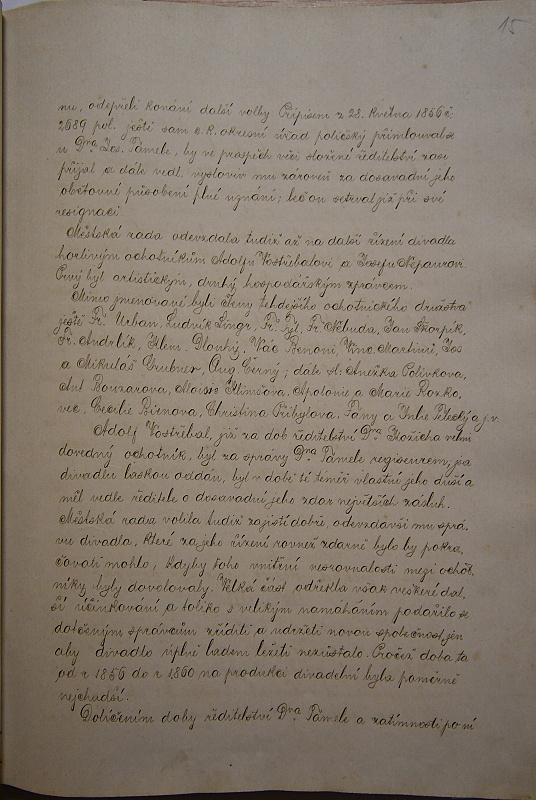 15
nu, odepřeli konání další volby. Přípisem z 28. května 1856 č.
2689 pol. ještě sam c. k. okresní úřad poličský přimlouval se
u Dra Jos. Pamele, by ve prospěch věci složené ředitelství zase
přijal a dále vedl, vysloviv mu zároveň za dosavadní jeho
obětovné působení plné uznání; leč on setrval již při své
resignaci.
Městská rada odevzdala tudíž až na další řízení divadla
horlivým ochotníkům Adolfu Vostřebalovi a Josefu Nepaurovi.
Prvý byl artistickým, druhý hospodářským správcem.
Mimo jmenované byli členy tehdejšího ochotnického družstva
ještě Fr. Urban, Ludvík Lingr, Fr. Týl, Fr. Štluda, Jan Škorpík,
Fr. Andrlík, Klem. Dlouhý, Vác. Benoni, Vinc. Martinů, Jos.
a Mikuláš Grubner, Aug. Černý; dále sl. Anežka Polívkova,
Ant. Bouzarova, Aloisie Klimšova, Apolonie a Marie Rozko,
vec, Cecilie Bienova, Christina Přibylova, Fány a Julie Pelecký a j. v.
Adolf Vostřebal, již za dob ředitelství Dra velmi
dovedný ochotník, byl za správy Dra Pamele regisseurem, jsa
divadlu láskou oddán, byl v době té téměř vlastní jeho duší a
měl vedle ředitele o dosavadní jeho zdar největších zásluh.
Městská rada volila tudíž zajisté dobře, odevzdavši mu sprá,
vu divadla, které za jeho řízení rovněž zdárně bylo by pokra,
čovati mohlo, kdyby toho vnitřní nesrovnalosti mezi ochot,
níky byly dovolovaly. Velká část odřekla však veškeré dal,
ší účinkování a toliko s velikým namáháním podařilo se
dotčeným správcům zříditi a udržeti novou společnost, jen
aby divadlo úplně ladem ležeti nezůstalo. Pročež doba ta
od r. 1856 do r. 1860 na produkci divadelní byla poměrně
nejchudší.
Dolíčením doby ředitelství Dra Pamele a zatímnosti po ní